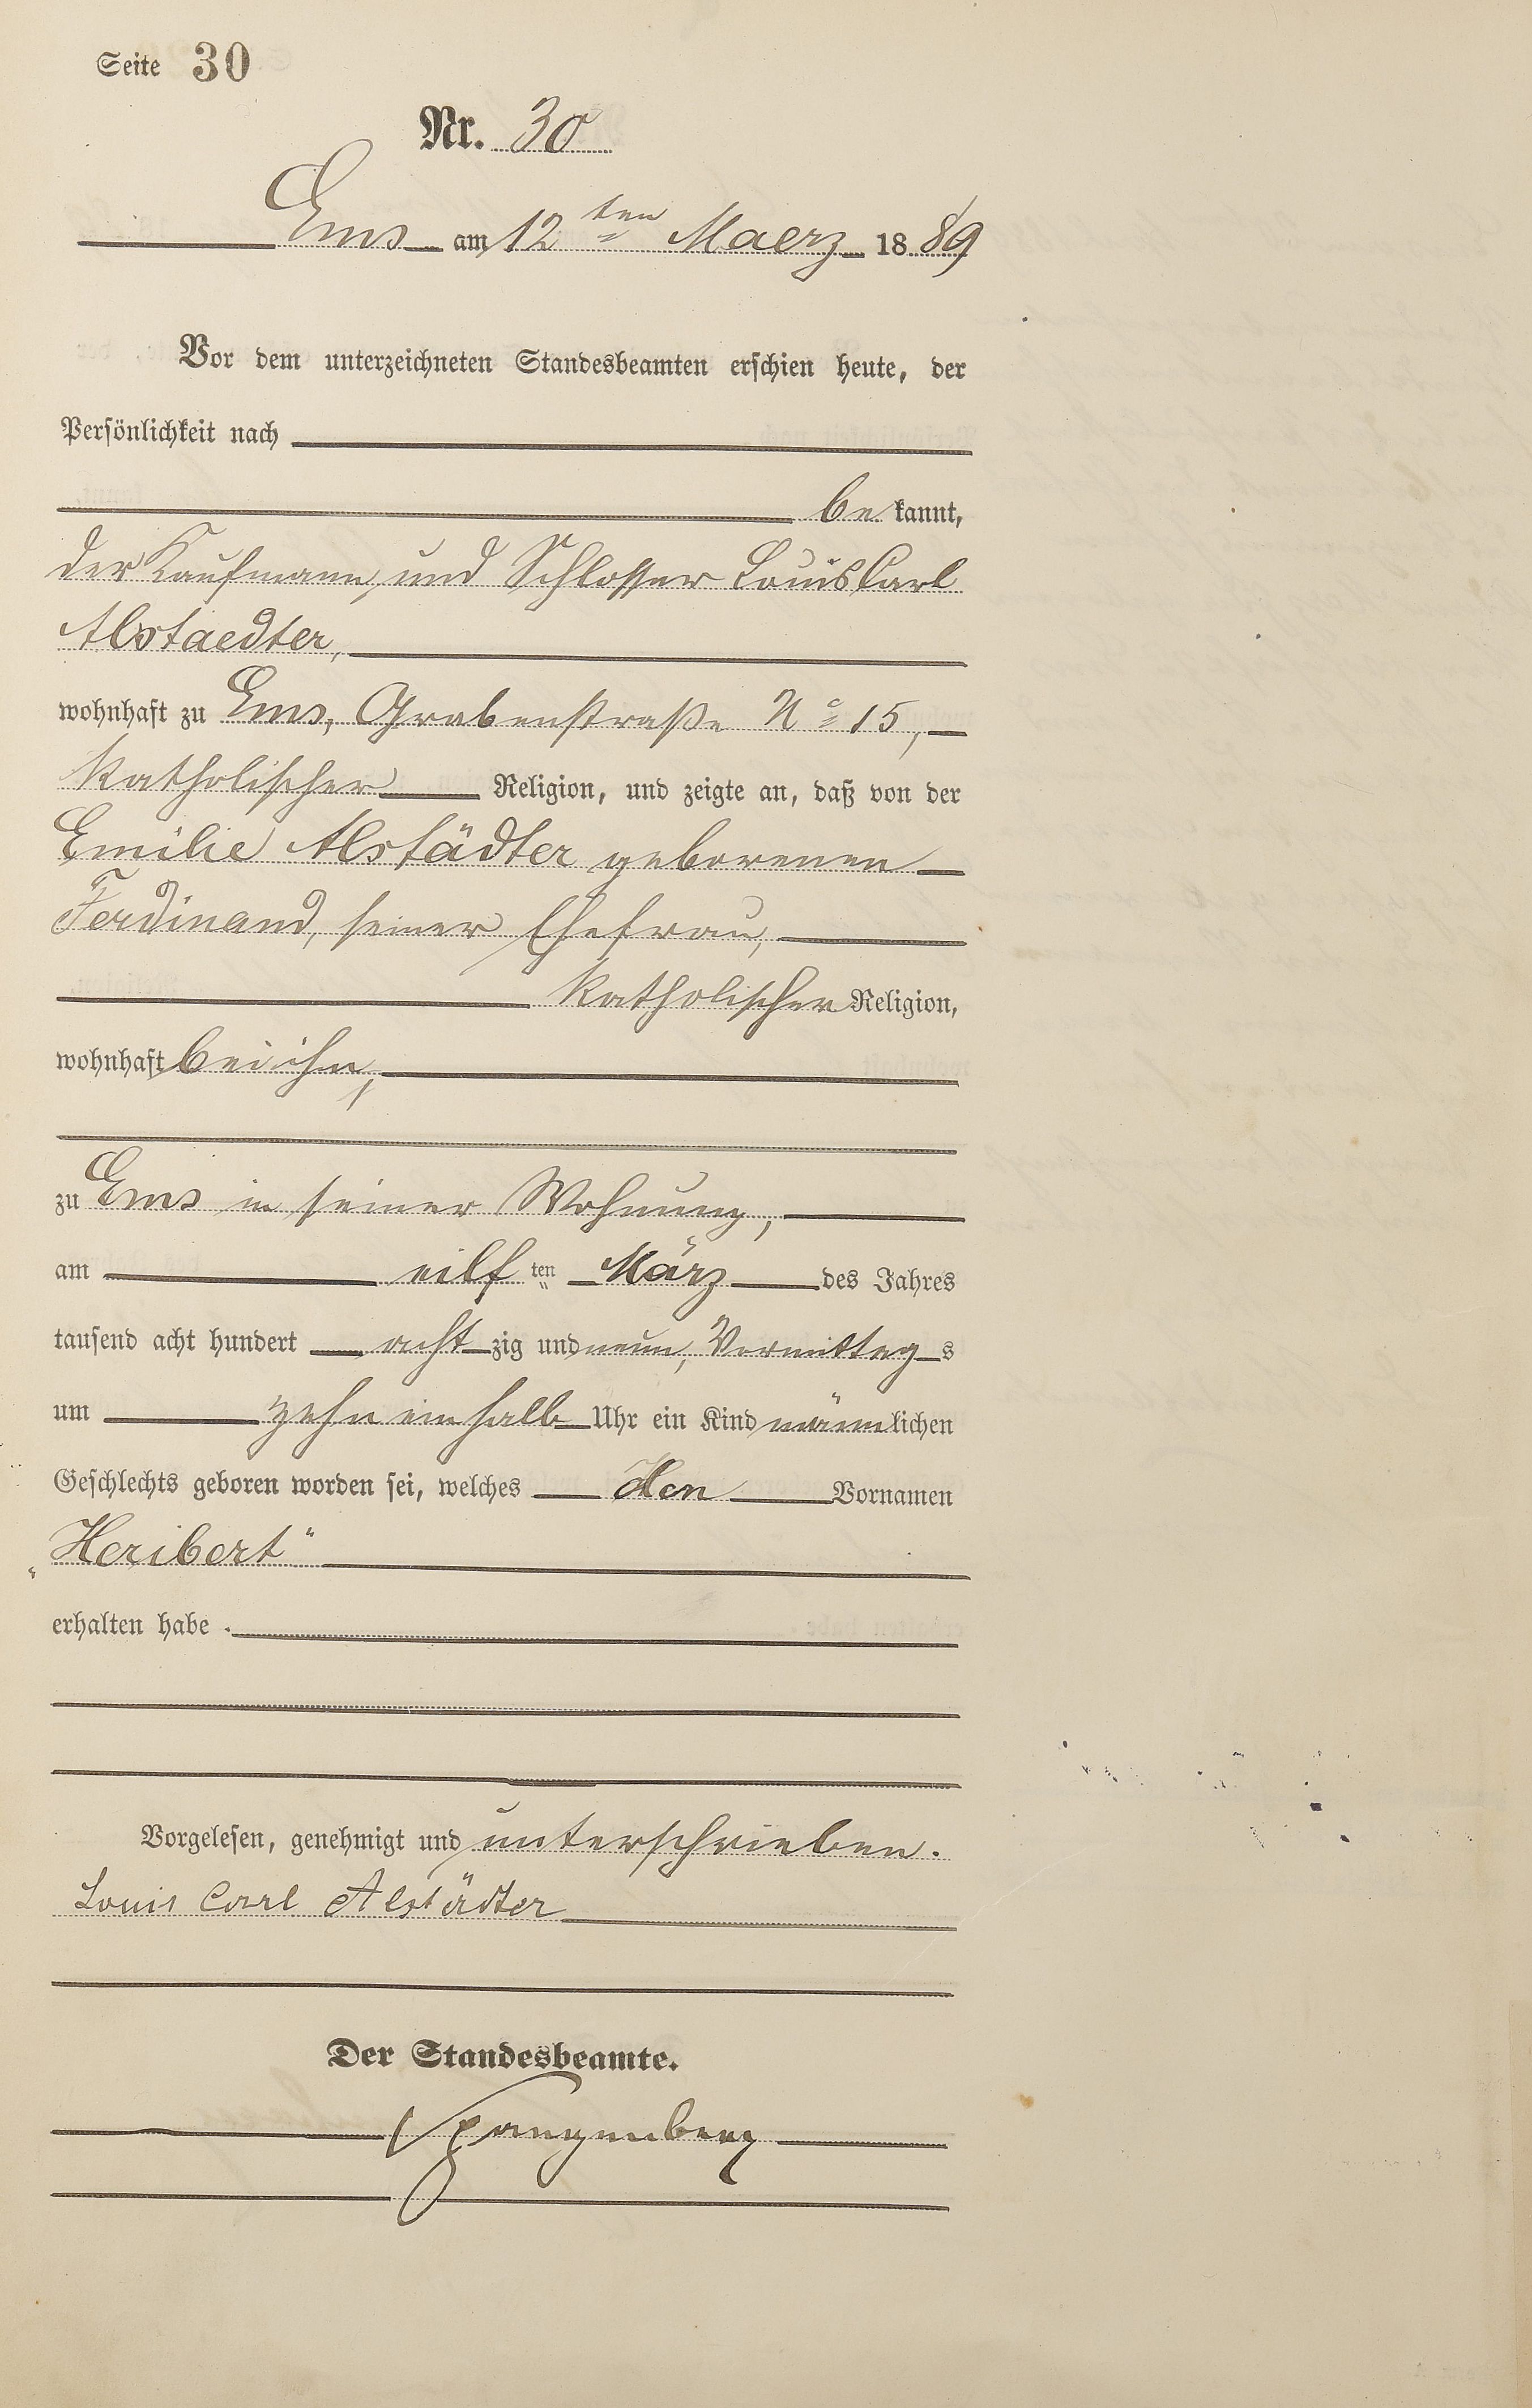 Seite 30
Nr. 30
Ems am 12ten Maerz 1889
Vor dem unterzeichneten Standesbeamten erschien heute, der
Persönlichkeit nach
bekannt,
der Kaufmann und Schlosser Louis Carl
Alstaedter,
wohnhaft zu Ems, Grabenstraße No 15,
katholischer Religion, und zeigte an, daß von der
Emilie Alstädter geborenen
Ferdinand, seiner Ehefrau,
katholischer Religion,
wohnhaft bei ihm,
zu Ems in seiner Wohnung,
am eilften März des Jahres
tausend acht hundert achtzig und neun, Vormittags
um zehn ein halb Uhr ein Kind männlichen
Geschlechts geboren worden sei, welches den Vornamen
„Heribert“
erhalten habe.
Vorgelesen, genehmigt und unterschrieben.
Louis Carl Alstädter
Der Standesbeamte.
Spangenberg